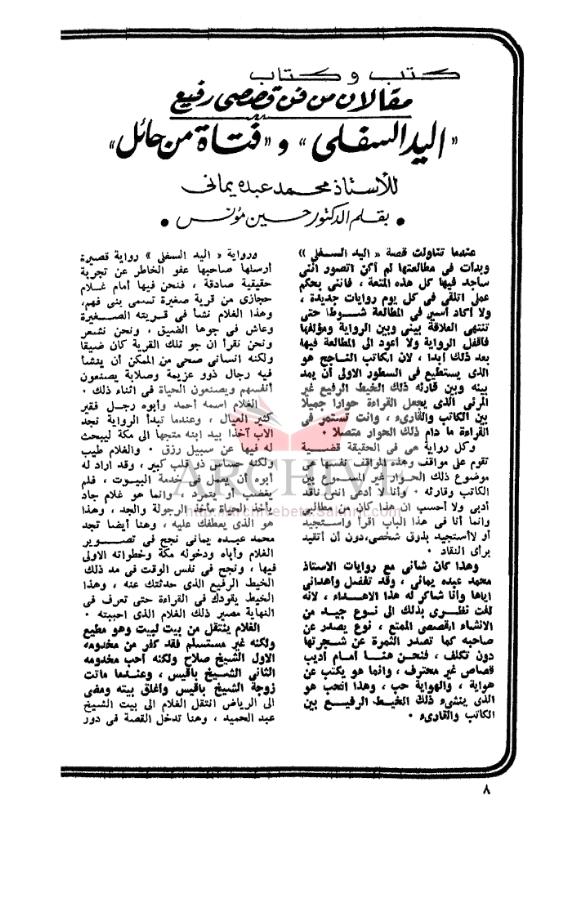 كتب وكتاب
مقالان من فن قصصى رفيع
«اليد السفلى» و «فتاة من حائل»
للأستاذ محمد عبده يمانى
• بقلم الدكتور حسين مؤنس •
عندما تناولت قصة « اليد السفلى »
وبدأت فى مطالعتها لم أكن أتصور أننى
ساجد فيها كل هذه المتعة ، فاننى بحكم
عملى أتلقى فى كل يوم روايات جديدة ،
ولا أكاد أسير فى المطالعة شوطا حتى
تنتهى العلاقة بينى وبين الرواية ومؤلفها
فأقفل الرواية ولا أعود الى المطالعة فيها
بعد ذلك أبدا ، لأن الكاتب الناجح هو
الذى يستطيع فى السطور الأولى أن يمد
بينه وبين قارئه ذلك الخيط الرفيع غير
المرئى الذى يجعل القراءة حوارا جميلا
بين الكاتب والقارىء ، وأنت تستمر فى
القراءة ما دام ذلك الحوار متصلا .
وكل رواية هى فى الحقيقة قضية
تقوم على مواقف وهذه المواقف هى
موضوع ذلك الحوار غير المسموع بين
الكاتب وقارئه . وأنا لا أدعى اننى ناقد
أدبى ولا أحسب ان هذا كان من مطالبى
وانما أنا فى هذا الباب أقرأ وأستجيد
أو لا أستجيد بذوق شخصى،دون أن أتقيد
برأى النقاد .
وهذا كان شأنى مع روايات الاستاذ
محمد عبده يمانى ، وقد تفضل وأهدانى
اياها وأنا شاكر له هذا الاهداء ، لأنه
لفت نظرى بذلك الى نوع جيد من
الانشاء القصصى الممتع ، نوع يصدر عن
صاحبه كما تصدر الثمرة عن شجرتها
دون تكلف ، فنحن هنا أمام أديب
قصاص غير محترف ، وانما هو يكتب عن
هواية ، والهواية حب ، وهذا الحب هو
الذى ينشىء ذلك الخيط الرفيع بين
الكاتب والقارىء .
ورواية « اليد السفلى » رواية قصيرة
أرسلها صاحبها عفو الخاطر عن تجربة
حقيقية صادقة ، فنحن فيها أمام غلام
حجازى من قرية صغيرة تسمى بنى فهم،
وهذا الغلام نشأ فى قريته الصغيرة
وعاش فى جوها الضيق ، ونحن نشعر
ونحن نقرأ أن جو تلك القرية كان ضيقا
ولكنه انسانى صحى من الممكن أن ينشأ
فيه رجال ذور عزيمة وصلابة يصنعون
أنفسهم ويصنعون الحياة فى أثناء ذلك .
الغلام اسمه أحمد وأبوه رجل فقير
كثير العيال ، وعندما تبدأ الرواية نجد
الأب آخذا بيد ابنه متجها الى مكة ليبحث
له فيها عن سبيل رزق . والغلام طيب
ولكنه حساس ذو قلب كبير ، وقد أراد له
أبوه أن يعمل فى خدمة البيوت ، فلم
يغضب أو يتمرد ، وانما هو غلام جاد
يأخذ الحياة مأخذ الرجولة والجد ، وهذا
هو الذى يعطفك عليه ، وهنا أيضا تجد
محمد عبده يمانى نجح فى تصوير
الغلام وأباه ودخوله مكة وخطواته الأولى
فيها ، ونجح فى نفس الوقت فى مد ذلك
الخيط الرفيع الذى حدثتك عنه ، وهذا
الخيط يقودك فى القراءة حتى تعرف فى
النهاية مصير ذلك الغلام الذى أحببته .
الغلام ينتقل من بيت لبيت وهو مطيع
ولكنه غير مستسلم فقد كفر من مخدومه
الأول الشيخ صلاح ولكنه أحب مخدومه
الثانى الشيخ باقيس ، وعندما ماتت
زوجة الشيخ باقيس وأغلق بيته ومضى
الى الرياض انتقل الغلام الى بيت الشيخ
عبد الحميد ، وهنا تدخل القصة فى دور
ARCHIVE
٨